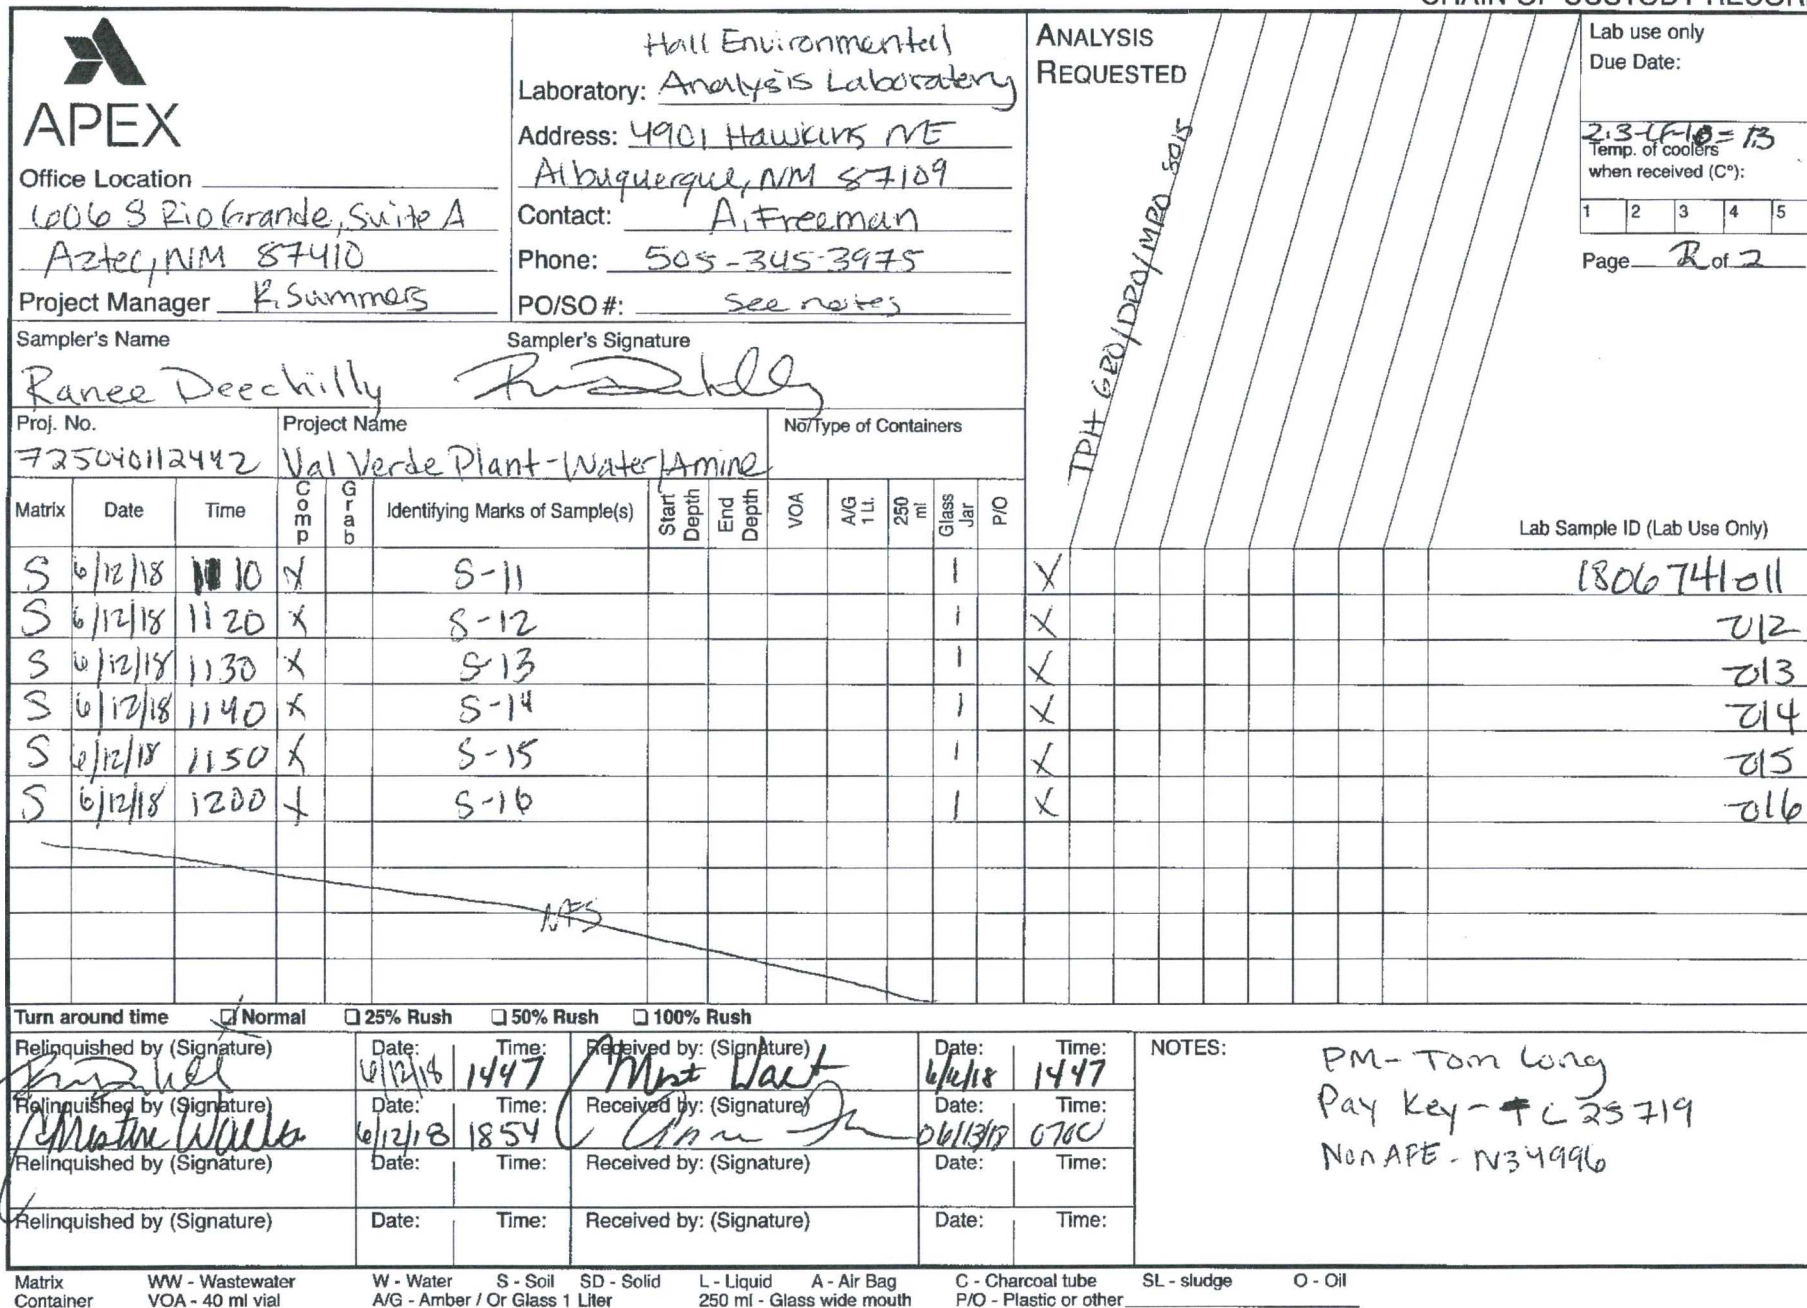 CHAIN OF CUSTODY RECOR
APEX
Office Location
606 S Rio Grande, Suite A
Aztec, NM 87410
Project Manager R. Summers
Hall Environmental
Laboratory: Analysis Laboratory
Address: 4901 Hawkins NE
Albuquerque, NM 87109
Contact: A. Freeman
Phone: 505-345-3975
PO/SO #: See notes
ANALYSIS
REQUESTED
TPH GRO/DRO/MRO 8015
Lab use only
Due Date:
Temp. of coolers
when received (C°):
1 2 3 4 5
Page 2 of 2
Sampler's Name
Ranee Deechilly
Sampler's Signature
Proj. No.
725040112442
Project Name
Val Verde Plant-Water/Amine
No/Type of Containers
Matrix Date Time Comp Grab Identifying Marks of Sample(s) Start Depth End Depth VOA A/G 1 Lt. 250 ml Glass Jar P/O Lab Sample ID (Lab Use Only)
S 6/12/18 1110 X S-11 1 X 1806741011
S 6/12/18 1120 X S-12 1 X 012
S 6/12/18 1130 X S-13 1 X 013
S 6/12/18 1140 X S-14 1 X 014
S 6/12/18 1150 X S-15 1 X 015
S 6/12/18 1200 X S-16 1 X 016
NFS
Turn around time Normal 25% Rush 50% Rush 100% Rush
Relinquished by (Signature) Date: 6/12/18 Time: 1447 Received by: (Signature) Date: Time: 1447
Relinquished by (Signature) Christine Waeles Date: 6/12/18 Time: 1854 Received by: (Signature) Date: 06/13/18 Time: 0700
Relinquished by (Signature) Date: Time: Received by: (Signature) Date: Time:
Relinquished by (Signature) Date: Time: Received by: (Signature) Date: Time:
NOTES:
PM- Tom Long
Pay Key - C 25719
Non AFE - N34996
Matrix WW - Wastewater W - Water S - Soil SD - Solid L - Liquid A - Air Bag C - Charcoal tube SL - sludge O - Oil
Container VOA - 40 ml vial A/G - Amber / Or Glass 1 Liter 250 ml - Glass wide mouth P/O - Plastic or other